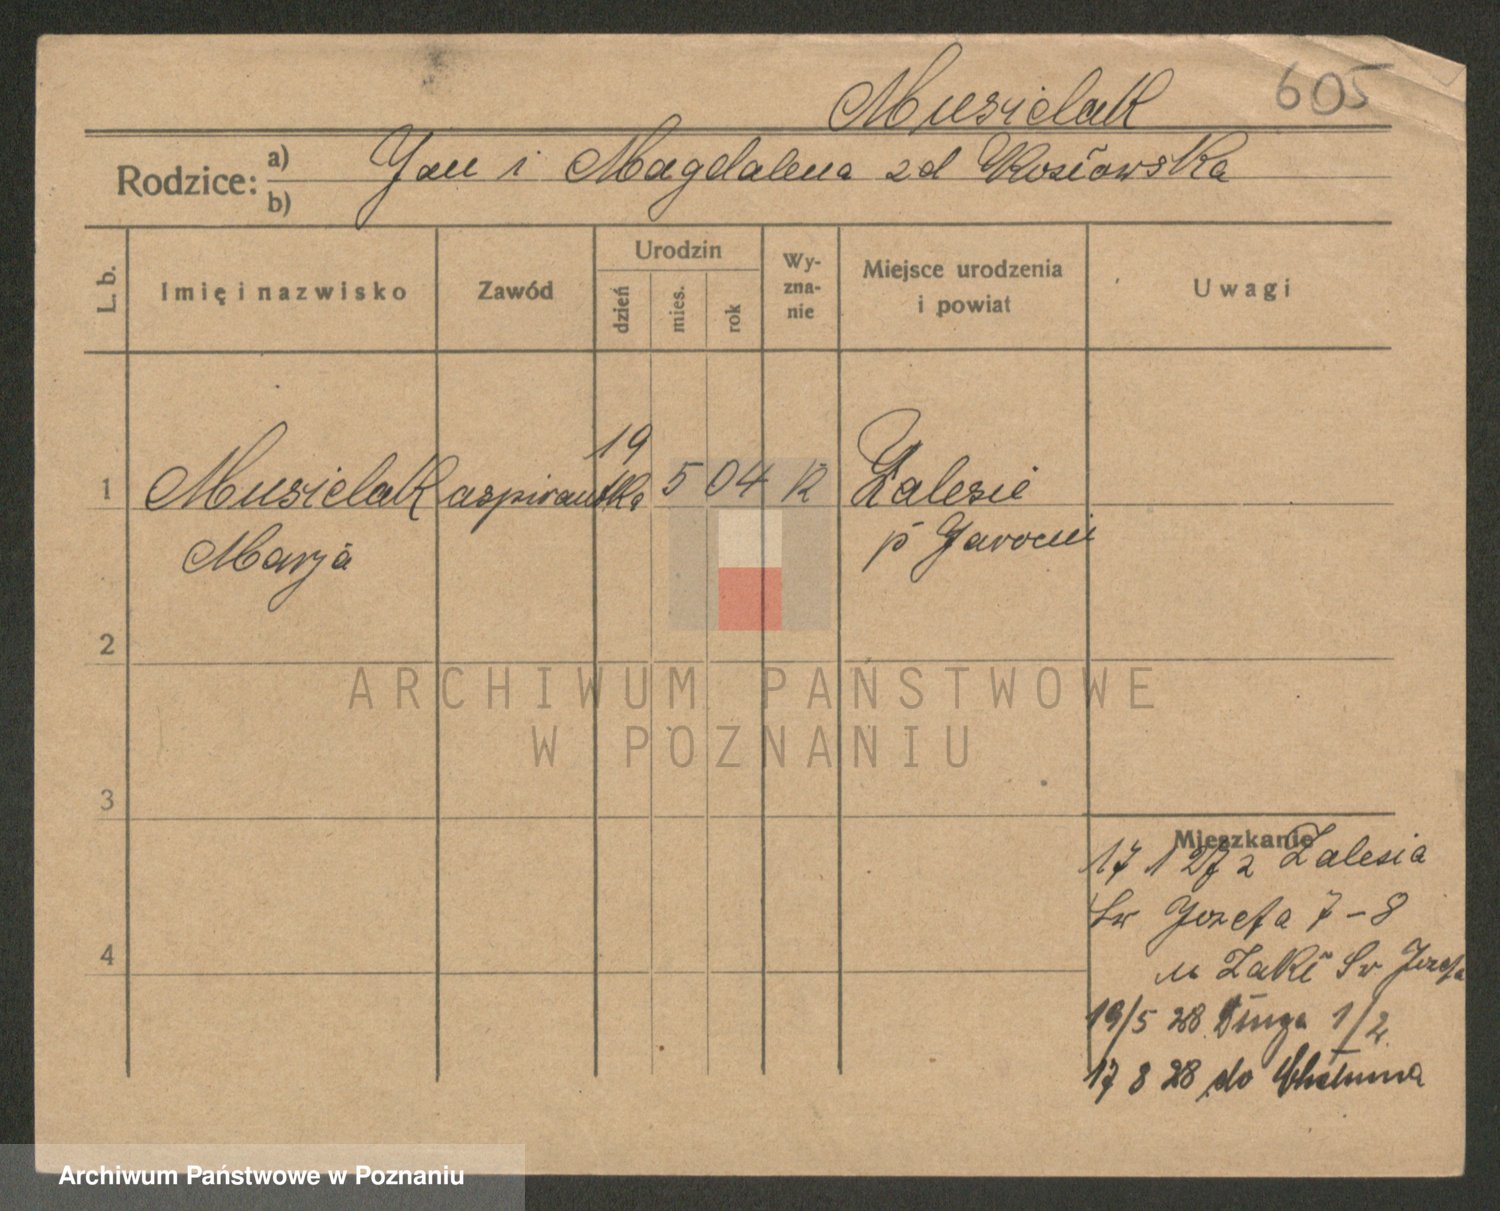 Musielak 605
Rodzice: a) b) Jan i Magdalena zd
L. b.
Imię i nazwisko
Zawód
Urodzin
dzień
mies.
rok
Wy-
zna-
nie
Miejsce urodzenia
i powiat
Uwagi
19
1 Musielak aspirantka 5 04 K Zalesie
Marja p Jarocin
2
3
4
Mieszkanie
17 1 27 z Zalesia
Św Jozefa 7-8
u Zakł Św Jozefa
19/5 28 Długa 1/2
17 8 28 do Chełmna
ARCHIWUM PAŃSTWOWE
W POZNANIU
Archiwum Państwowe w Poznaniu